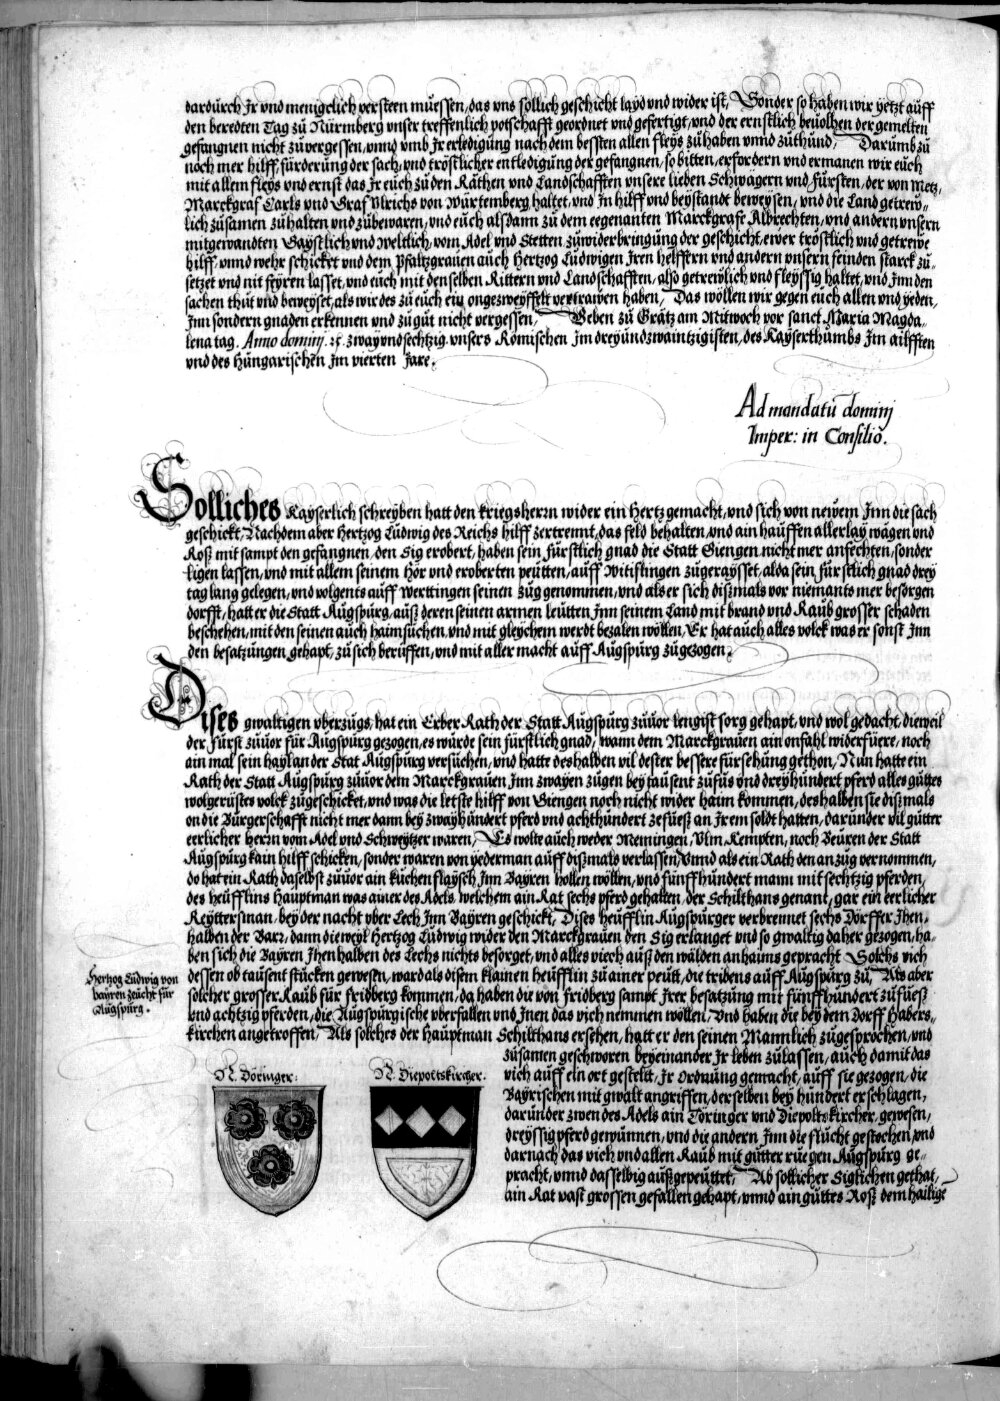 dardurch Jr vnd menigclich versteen muessen, das vns sollich geschicht layd vnd wider ist, Sonder so haben wir yetzt auff
den beredten Tag zu Nürmberg vnser treffenlich potschafft geordnet vnd gefertigt, vnd der ernstlich beuolhen der gemelten
gefangnen nicht zuvergessen, vnnd vmb Jr erledigung nach dem bessten allen fleys zuhaben vnnd zuthund, Darumb zu
noch mer hilff, fürderung der sach, vnd tröstlicher entledigung der gefangnen, so bitten, erfordern vnd ermanen wir euch
mit allem fleys vnd ernst das Jr euch zu den Räthen vnd Landschafften vnsere lieben Schwägern vnd Fürsten, der von Metz,
Marckgraf Carls vnd Graf Vlrichs von Würtemberg haltet, vnd Jn hilff vnd beystandt beweysen, vnd die Land getrew-
lich zusamen zuhalten vnd zubewaren, vnd euch alsdann zu dem eegenanten Marckgrafe Albrechten, vnd andern vnsern
mitgewandten Gaystlich vnd weltlich, vom Adel vnd Stetten zuwiderbringung der geschicht, ewer tröstlich vnd getrewe
hilff, vnnd wehr schicket vnd dem Pfaltzgrauen auch Hertzog Ludwigen Jren helffern vnd andern vnsern feinden starck zu-
setzet vnd nit feyren lasset, vnd euch mit denselben Rittern vnd Landschafften, also getrewlich vnd fleyssig haltet, vnd Jnn den
sachen thut vnd beweyset, als wir des zu euch ein ongezweyffelt vertrawen haben, Das wöllen wir gegen euch allen vnd yeden,
Jnn sondern gnaden erkennen vnd zu gut nicht vergessen, Geben zu Grätz am Mitwoch vor sanct Maria Magda-
lena tag. Anno dominj. zc. zway vnd sechtzig. vnsers Römischen Jm dreyundzwaintzigisten, des Kayserthumbs Jm ailfften
vnd des Hungarischen Jm vierten Jare.
Ad mandatū dominj
Imper: in Consilio.
Solliches Kayserlich schreyben hatt den kriegsherrn wider ein Hertz gemacht, vnd sich von newem Jnn die sach
geschickt, Nachdem aber Hertzog Ludwig des Reichs hilff zertrennt, das feld behalten, vnd ain hauffen allerlay wägen vnd
Roß mit sampt den gefangnen, den Sig erobert, haben sein fürstlich gnad die Statt Giengen nicht mer anfechten, sonder
ligen lassen, vnd mit allem seinem Hör vnd eroberten peutten, auff Witislingen zugeraysset, alda sein fürstlich gnad drey
tag lang gelegen, vnd volgents auff Werttingen seinen zug genommen, vnd als er sich dißmals vor niemants mer besorgen
dorfft, hatt er die Statt Augspurg, auß deren seinen armen leutten Jnn seinem Land mit brand vnd Raub grosser schaden
beschehen, mit den seinen auch haimsuchen, vnd mit gleychem werdt bezalen wöllen, Er hat auch alles volck was er sonst Jnn
den besatzungen gehapt, zu sich berüffen, vnd mit aller macht auff Augspurg zugezogen.
Dises gwaltigen vberzugs, hat ein Erber Rath der Statt Augspurg zuuor lengist sorg gehapt, vnd wol gedacht, dieweil
der Fürst zuuor für Augspurg gezogen, es wurde sein fürstlich gnad, wann dem Marckgrauen ain onfahl widerfüere, noch
ain mal sein hayl an der Stat Augspurg versuchen, vnd hatte deshalben vil dester bessere fürsehung gethon, Nun hatte ein
Rath der Statt Augspurg zuuor dem Marckgrauen Jnn zwayen zügen bey tausent zufus vnd dreyhundert pferd alles guttes
wolgerüstes volck zugeschicket, vnd was die letste hilff von Giengen noch nicht wider haim kommen, deshalben sie dißmals
on die Burgerschafft nicht mer dann bey zwayhundert pferd vnd achthundert zefuess an Jrem soldt hatten, darunder vil gutter
eerlicher herrn vom Adel vnd Schweytzer waren, Es wolte auch weder Memingen, Vlm, Kempten, noch Beuren der Statt
Augspurg kain hilff schicken, sonder waren von yederman auff dißmals verlassen, Vnnd als ein Rath den anzug vernommen,
do hat ein Rath daselbst zuuor ain kuchen flaysch Jnn Bayren hollen wöllen, vnd fünffhundert mann mit sechtzig pferden,
des heufflins hauptman was ainer des Adels, welchem ain Rat sechs pferd gehalten, der Schilthans genant, gar ein eerlicher
Reyttersman, bey der nacht vber Lech Jnn Bayren geschickt, Dises heufflin Augspurger verbrennet sechs Dörffer Jhen-
halben der Barr, dann die weyl Hertzog Ludwig wider den Marckgrauen den Sig erlanget vnd so gwaltig daher gezogen, ha-
ben sich die Bayren Jhenhalben des Lechs nichts besorget, vnd alles viech auß den wälden anhaims gepracht, Solchs vich
dessen ob tausent stucken gewesen, ward als disem klainen heufflin zu ainer peutt, die tribens auff Augspurg zu, Als aber
solcher grosser Raub für Fridberg kommen, da haben die von Fridberg sampt Jrer besatzung mit fünffhundert zufuesz
vnd achtzig pferden, die Augspurgische vberfallen vnd Jnen das vich nemmen wöllen, Vnd haben die bey dem Dorff Habers-
kirchen angetroffen, Als solches der hauptman Schilthans ersehen, hatt er den seinen Mannlich zugesprochen, vnd
zusamen geschworen beyeinander Jr leben zulassen, auch damit das
vich auff ein ort gestellt, Jr ordnung gemacht, auff sie gezogen, die
Bayrischen mit gwalt angriffen, derselben bey hundert erschlagen,
darunder zwen des Adels ain Töringer vnd Diepoltskircher, gewesen,
dreyssig pferd gewunnen, vnd die andern Jnn die flucht gestochen, vnd
darnach das vich vnd allen Raub mit gutter rue gen Augspurg ge-
pracht, vnnd dasselbig außgepeuttet, Ab sollicher Siglichen gethat,
ain Rat vast grossen gefallen gehapt, vnnd ain guttes Roß dem hailige
Hertzog Ludwig von
bayren zeucht für
Augspurg.
N. Döringer:
N. Diepoltskircher.